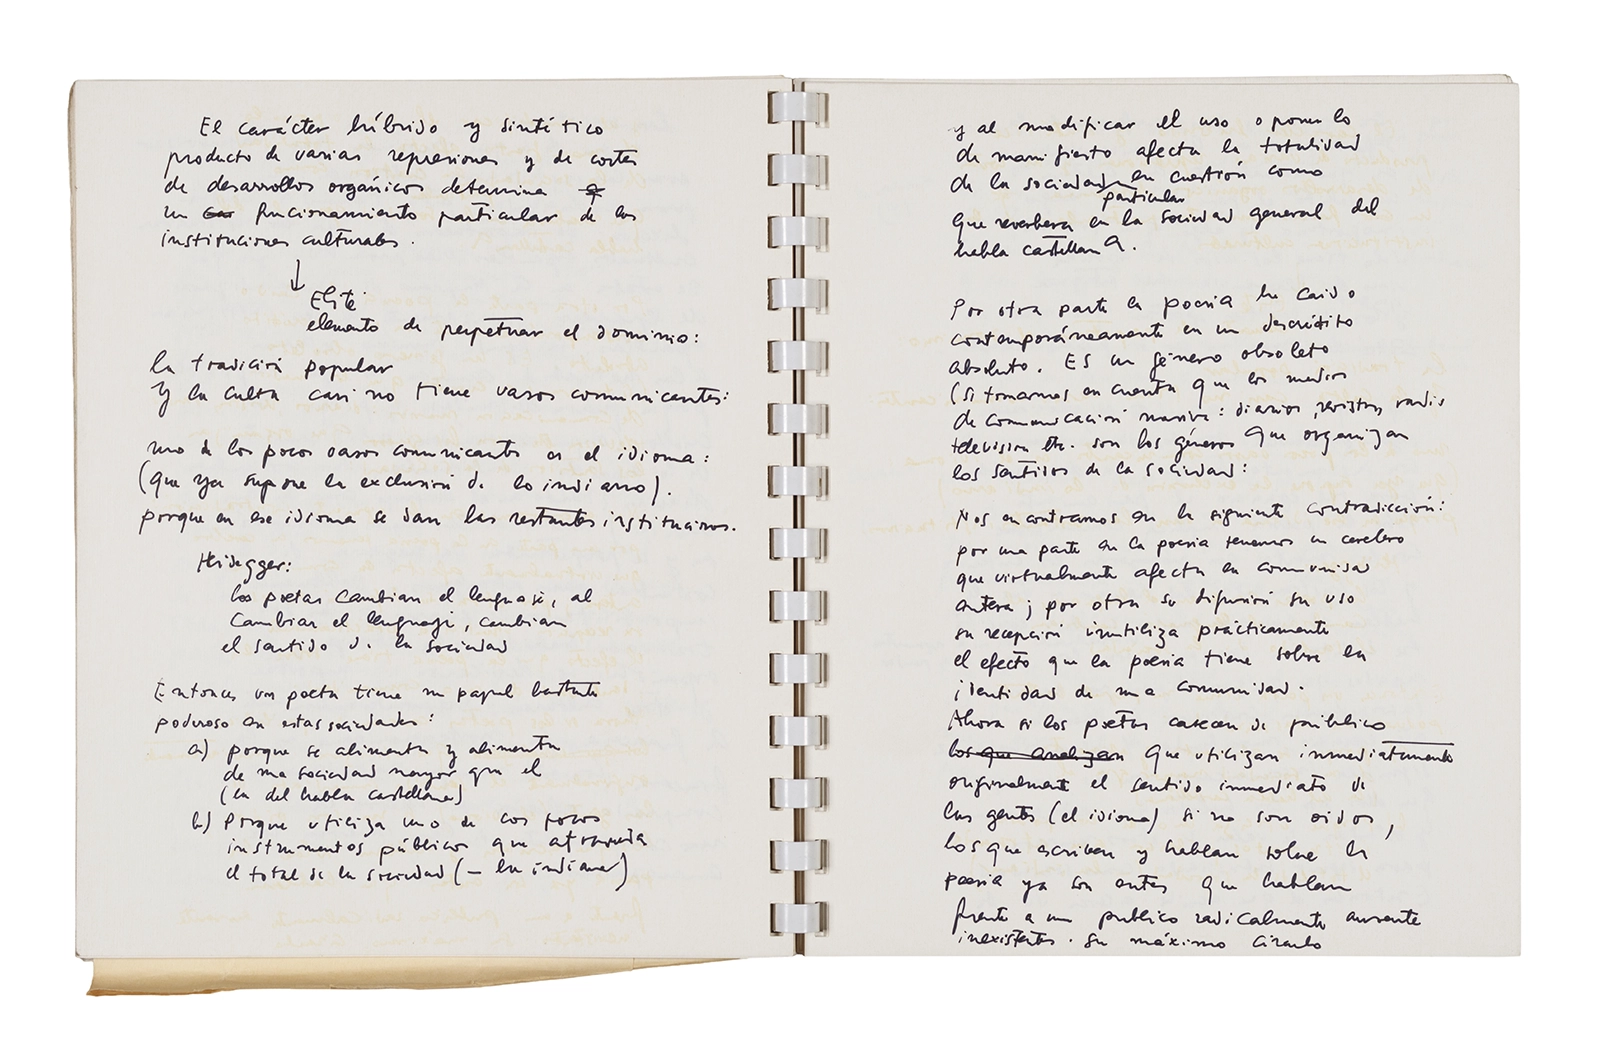 El carácter híbrido y sintético
producto de varias represiones y de cortes
de desarrollos orgánicos determina
un funcionamiento particular de las
instituciones culturales.
↓
Elite
elemento de perpetuar el dominio:
la tradición popular
y la culta casi no tiene vasos comunicantes:
uno de los pocos vasos comunicantes es el idioma:
(que ya supone la exclusión de lo indiano).
porque en ese idioma se dan las restantes instituciones.
Heidegger:
los poetas cambian el lenguaje, al
cambiar el lenguaje, cambian
el sentido de la sociedad
Entonces un poeta tiene un papel bastante
poderoso en estas sociedades:
a) porque se alimenta y alimenta
de una sociedad mayor que él
(la del habla castellana)
b) porque utiliza uno de los pocos
instrumentos públicos que atraviesa
el total de la sociedad (– la indiana)
y al modificar el uso o ponerlo
de manifiesto afecta la totalidad
de la sociedad en cuestión como
particular
que reverbera en la sociedad general del
habla castellana.
Por otra parte la poesía ha caído
contemporáneamente en un descrédito
absoluto. Es un género obsoleto
(si tomamos en cuenta que los medios
de comunicación masiva: diarios, revistas, radio
television etc. son los géneros que organizan
los sentidos de la sociedad:
Nos encontramos en la siguiente contradicción:
por una parte en la poesía tenemos un cerebro
que virtualmente afecta en comunidad
entera; por otra su difusión su uso
su recepción inutiliza prácticamente
el efecto que la poesía tiene sobre la
identidad de una comunidad.
Ahora si los poetas carecen de público
los que analizan que utilizan inmediatamente
originalmente el sentido inmediato de
las gentes (el idioma) si no son oídos,
los que escriben y hablan sobre la
poesía ya son entes que hablan
frente a un publico radicalmente ausente
inexistentes. Su máximo círculo